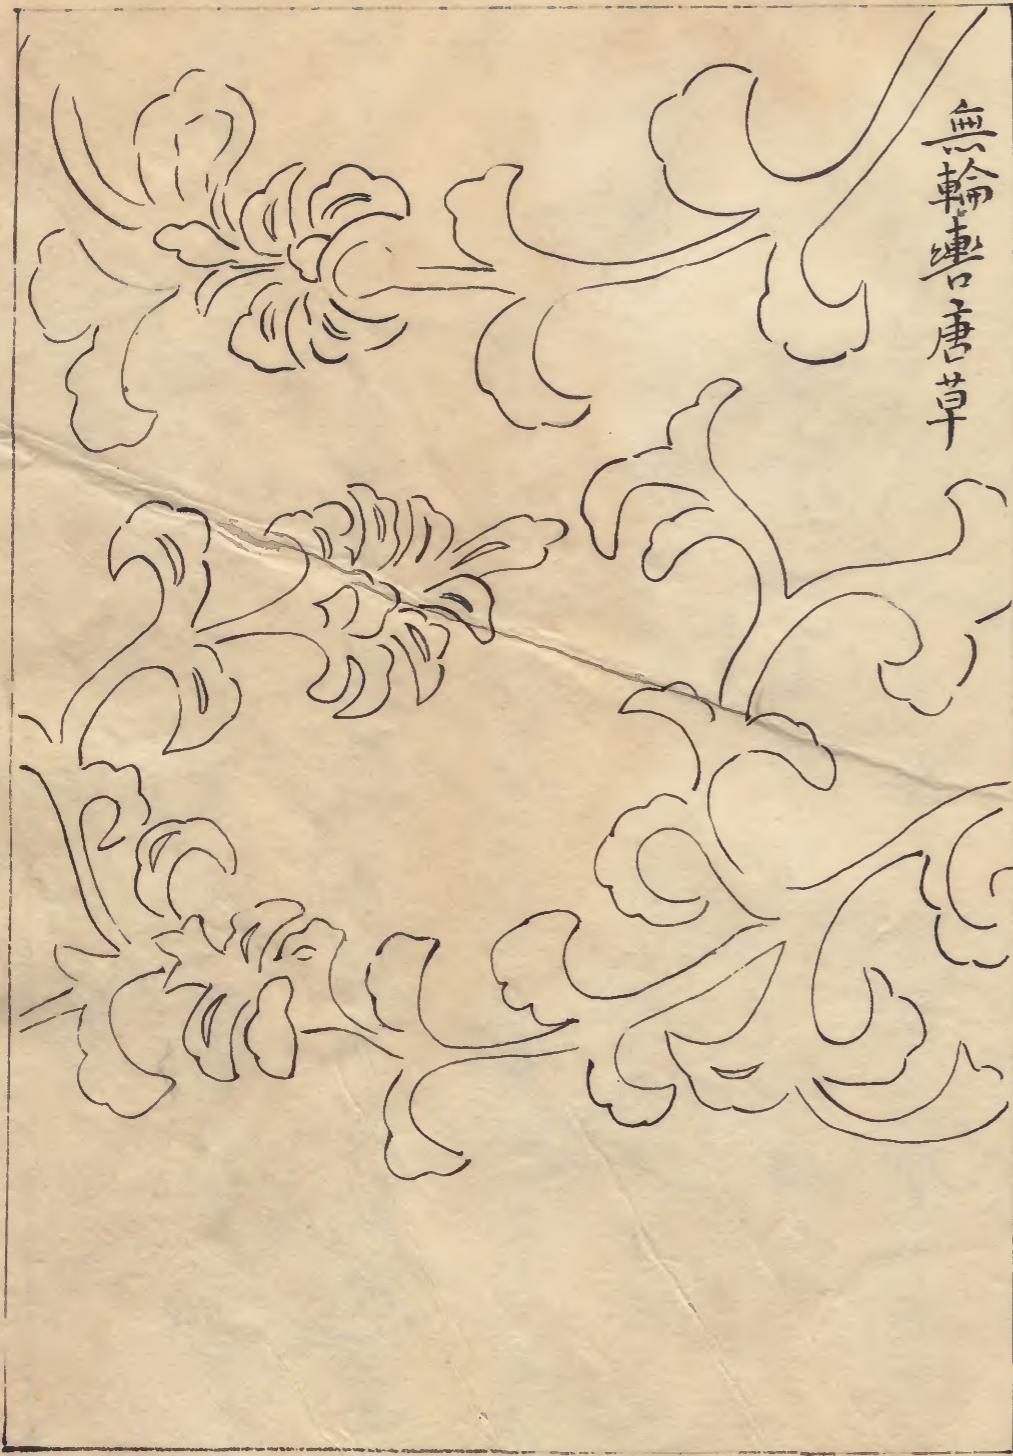 無輪轡唐草